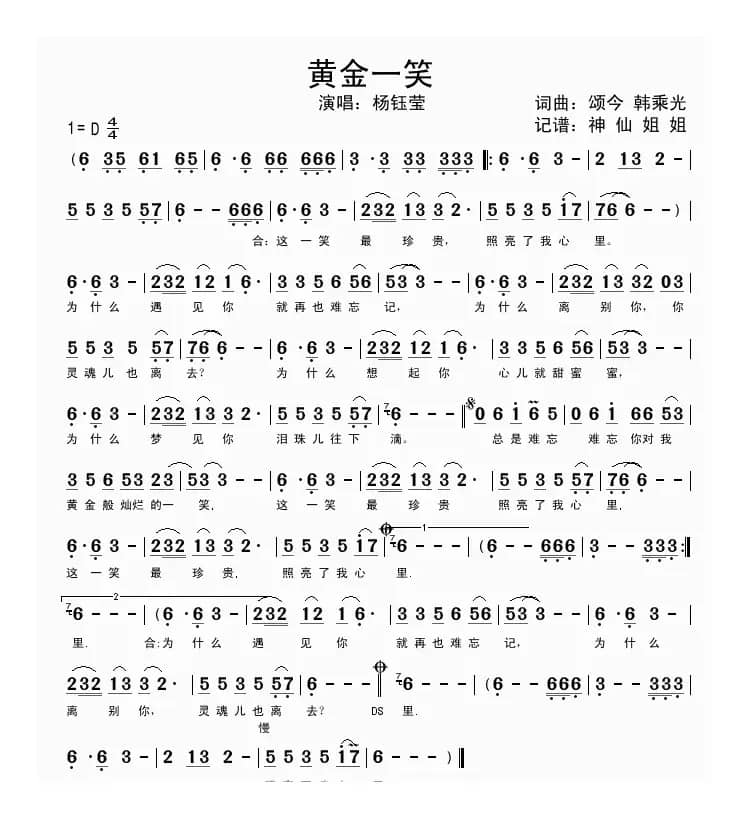 黄金一笑
演唱：杨钰莹
词曲：颂今 韩乘光
1=D 4/4
记谱：神 仙 姐 姐
(6 35 61 65|6·6 66 666|3·3 33 333‖:6·6 3-|2 13 2-|
5 5 3 5 57|6--666|6·6 3-|232 13 3 2·|5 5 3 5 i7|76 6--)|
合：这 一 笑 最 珍 贵， 照 亮 了 我 心 里。
6·6 3-|232 12 1 6·|3 3 5 6 56|53 3--|6·6 3-|232 13 32 03|
为 什 么 遇 见 你 就 再 也 难 忘 记， 为 什 么 离 别 你，你
5 5 3 5 57|76 6--|6·6 3-|232 12 1 6·|3 3 5 6 56|53 3--|
灵 魂 儿 也 离 去？ 为 什 么 想 起 你 心 儿 就 甜 蜜 蜜，
6·6 3-|232 13 3 2·|5 5 3 5 57|7 6---‖0 6 i i6 5|0 6 i 66 53|
为 什 么 梦 见 你 泪 珠 儿 往 下 滴。 总 是 难 忘 难 忘 你 对 我
3 5 6 53 23|53 3--|6·6 3-|232 13 3 2·|5 5 3 5 57|76 6--|
黄 金 般 灿 烂 的 一 笑， 这 一 笑 最 珍 贵 照 亮 了 我 心 里，
1
6·6 3-|232 13 3 2·|5 5 3 5 i7|7 6---|(6--666|3--333:‖
这 一 笑 最 珍 贵， 照 亮 了 我 心 里.
2
7 6---|(6·6 3-|232 12 1 6·|3 3 5 6 56|53 3--|6·6 3-|
里. 合:为 什 么 遇 见 你 就 再 也 难 忘 记， 为 什 么
232 13 3 2·|5 5 3 5 57|6---‖7 6---|(6--666|3--333|
离 别 你， 灵 魂 儿 也 离 去？ DS 里.
慢
6·6 3-|2 13 2-|5 5 3 5 i7|6---)‖